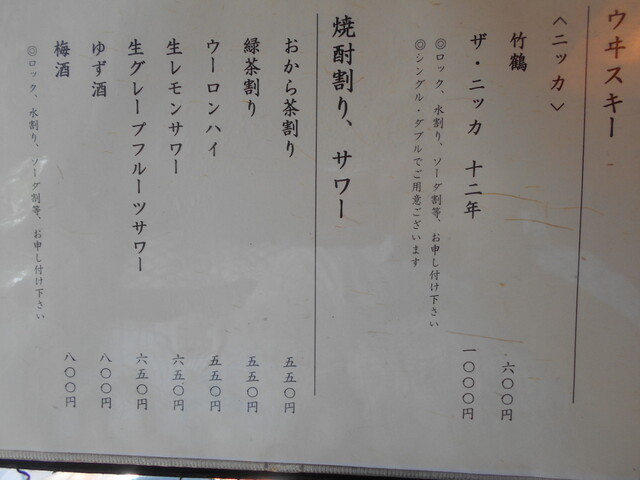 ウヰスキー
〈ニッカ〉
竹鶴 六〇〇円
ザ・ニッカ 十二年 一〇〇〇円
◎ロック、水割り、ソーダ割等、お申し付け下さい
◎シングル・ダブルでご用意ございます
焼酎割り、サワー
おから茶割り 五五〇円
緑茶割り 五五〇円
ウーロンハイ 五五〇円
生レモンサワー 六五〇円
生グレープフルーツサワー 六五〇円
ゆず酒 八〇〇円
梅酒 八〇〇円
◎ロック、水割り、ソーダ割等、お申し付け下さい